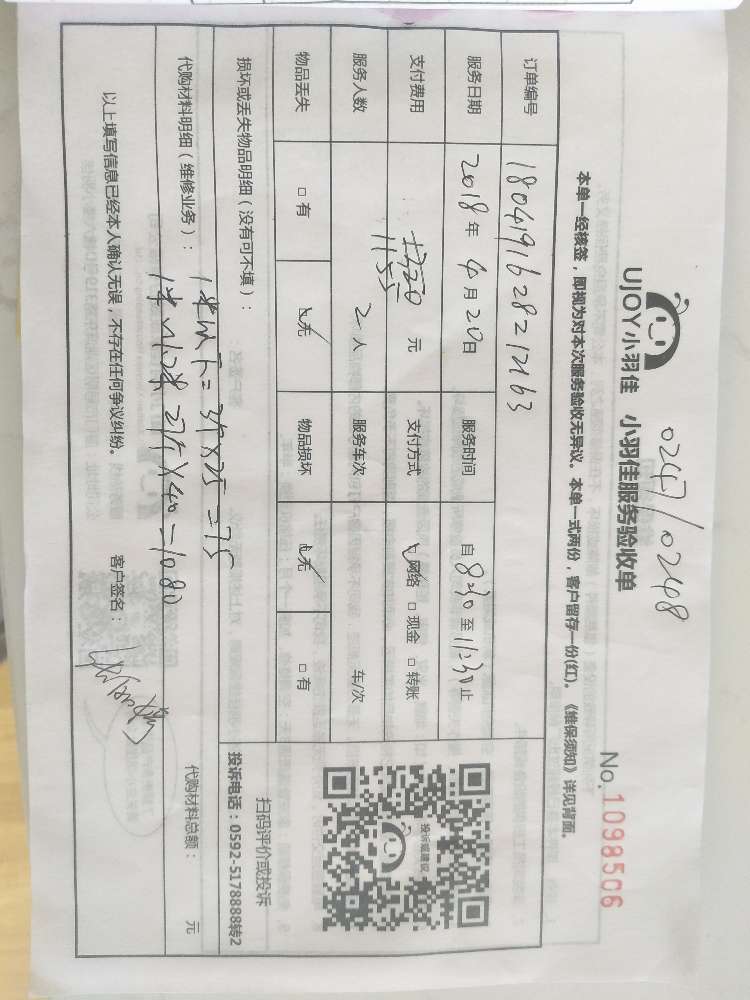 0247/0248
UJOY小羽佳 小羽佳服务验收单
No. 1098506
本单一经核签，即视为对本次服务验收无异议。本单一式两份，客户留存一份(红)。《维保须知》详见背面。
订单编号 180419162821263
服务日期 2018年4月20日 服务时间 自8:30至11:30止
支付费用 1155 元 支付方式 ☑网络 □现金 □转账
服务人数 2人 服务车次 车/次
物品丢失 □有 ☑无 物品损坏 ☑无 □有
投诉或建议
扫码评价或投诉
投诉电话：0592-5178888转2
损坏或丢失物品明细（没有可不填）：
1米以下=3件×25=75
代购材料明细（维修业务）： 代购材料总额： 元
27片×40=1080
以上填写信息已经本人确认无误，不存在任何争议纠纷。 客户签名：